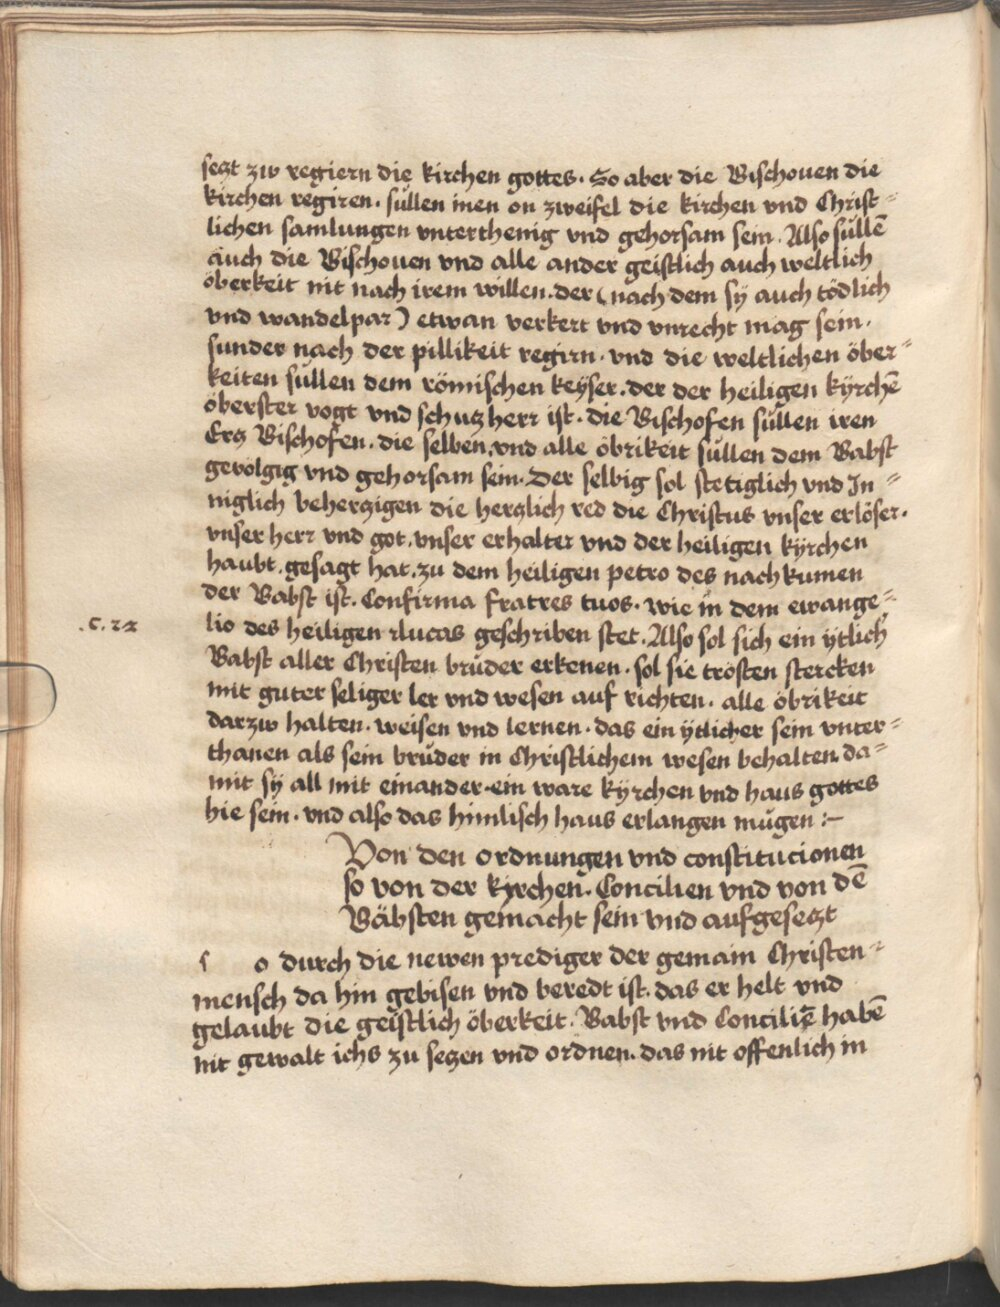 setzt zw regiern die kirchen gottes. So aber die Bischouen die
kirchen regiren. süllen inen on zweifel die kirchen vnd Christ=
lichen samlungen vnterthenig vnd gehorsam sein. Also süllē
auch die Bischouen vnd alle ander geistlich auch weltlich
öberkeit nit nach irem willen. der (nach dem sÿ auch tödlich
vnd wandelpar) etwan verkert vnd vnrecht mag sein.
sunder nach der pillikeit regirn. vnd die weltlichen öber=
keiten süllen dem römischen keÿser. der der heiligen kÿrchē
öberster vogt vnd schutzherr ist. die Bischofen süllen iren
Ertz Bischofen. die selben, vnd alle öbrikeit süllen dem Babst
gevolgig vnd gehorsam sein. Der selbig sol stetiglich vnd In=
niglich behertzigen die hertzlich red die Christus vnser erlöser.
vnser herr vnd got. vnser erhalter vnd der heiligen kÿrchen
haubt. gesagt hat. zu dem heiligen petro des nachkumen
der Babst ist. Confirma fratres tuos. wie in dem ewange=
.c. 22
lio des heiligen lucas geschriben stet. Also sol sich ein ÿtlich
Babst aller Christen brüder erkenen. sol sie trösten stercken
mit guter seliger ler vnd wesen auf richten. alle öbrikeit
darzw halten. weisen vnd lernen. das ein ÿtlicher sein vnter=
thanen als sein brüder in Christlichem wesen behalten. da=
mit sÿ all mit einander. ein ware kÿrchen vnd haus gottes
hie sein. vnd also das himlisch haus erlangen mügen :~
Von den ordnungen vnd constitucionen
so von der kÿrchen. Concilien vnd von dē
Bäbsten gemacht sein vnd aufgesetzt
s o durch die newen prediger der gemain Christen=
mensch da hin gebisen vnd beredt ist. das er helt vnd
gelaubt die geistlich öberkeit. Babst vnd Conciliē habē
nit gewalt ichs zu setzen vnd ordnen. das nit offenlich in